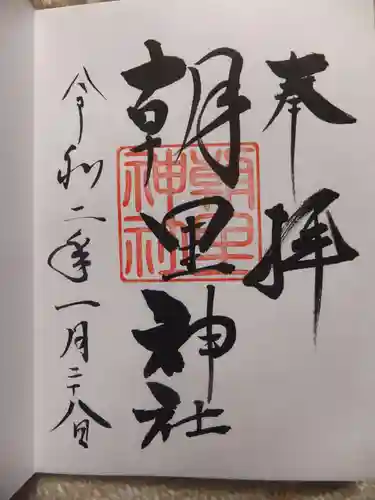 奉拝
朝里神社
朝里神社
令和二年一月二十八日